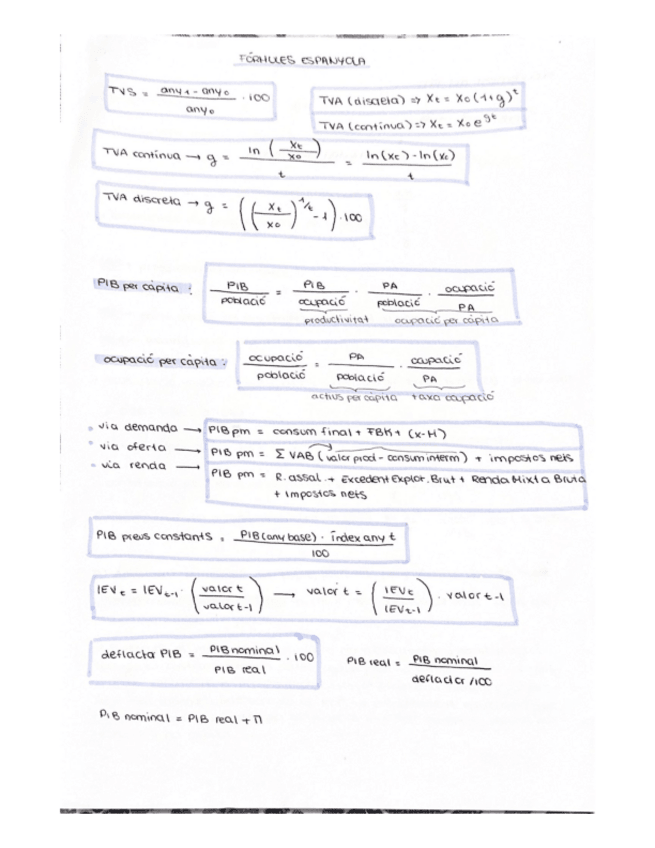 FÓRMULES ESPANYOLA
TVS = (any1 - any0 / any0) · 100
TVA (discreta) => Xt = X0 (1+g)^t
TVA (contínua) => Xt = X0 e^gt
TVA contínua → g = ln (Xt / X0) / t = ln(Xt) - ln(X0) / t
TVA discreta → g = ((Xt / X0)^1/t - 1) · 100
PIB per càpita : PIB / població = PIB / ocupació · PA / població · ocupació / PA
productivitat ocupació per càpita
ocupació per càpita : ocupació / població = PA / població · ocupació / PA
actius per càpita taxa ocupació
• via demanda → PIB pm = consum final + FBK + (X-M)
• via oferta → PIB pm = Σ VAB (valor prod - consum interm) + impostos nets
• via renda → PIB pm = R. assal. + Excedent Explor. Brut + Renda Mixta Bruta
+ impostos nets
PIB preus constants = PIB (any base) · índex any t / 100
IEVt = IEVt-1 · (valor t / valor t-1) → valor t = (IEVt / IEVt-1) · valor t-1
deflacta PIB = PIB nominal / PIB real · 100
PIB real = PIB nominal / deflactor /100
PIB nominal = PIB real + Π